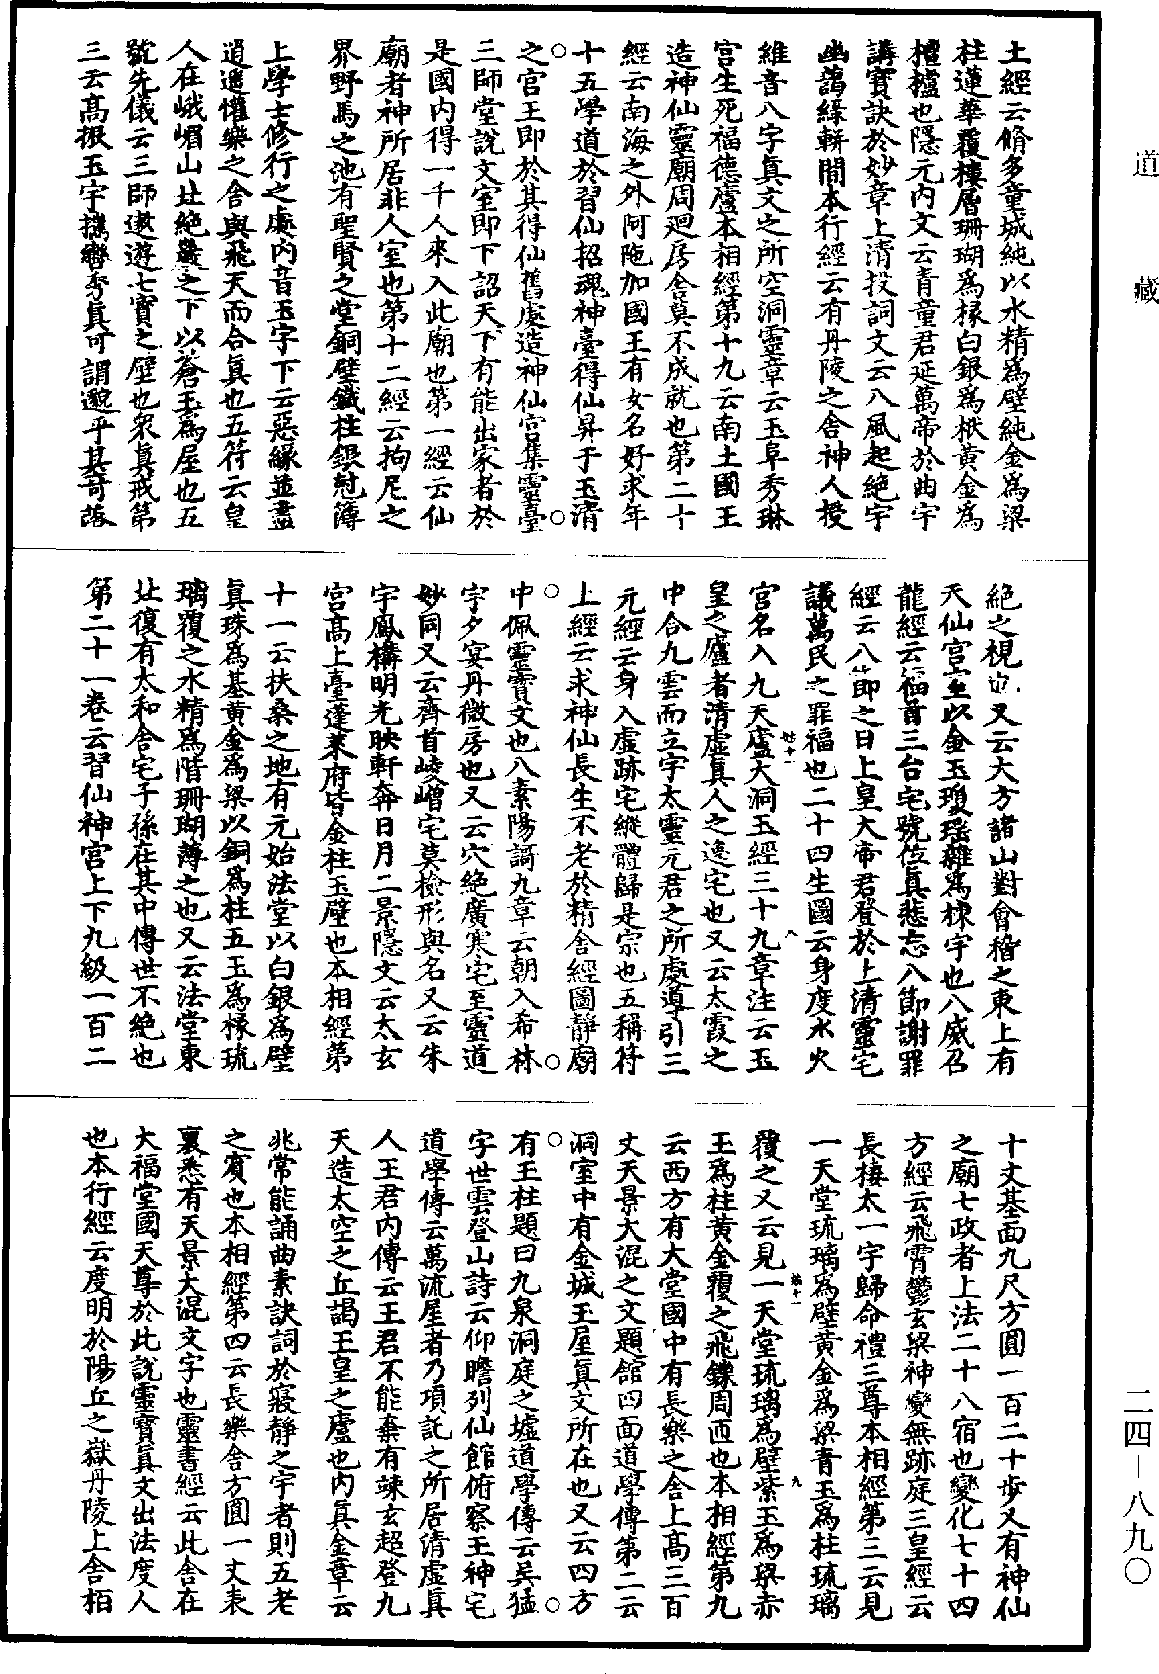 道藏
土經云脩多童城純以水精爲壁純金爲梁
柱蓮華覆樓層珊瑚爲椽白銀爲栿黃金爲
檀櫨也隱元内文云青童君延萬帝於曲宇
講寶訣於妙章上清投詞文云八風起絶宇
幽藹緑軿間本行經云有丹陵之舍神人授
維音八字真文之所空洞靈章云玉阜秀琳
宫生死福德廬本相經第十九云南土國王
造神仙靈廟周廻房舍莫不成就也第二十
經云南海之外阿陁加國王有女名好求年
十五學道於習仙招魂神臺得仙昇于玉清
之宫王即於其得仙舊處造神仙宫集靈臺
三師堂說文室即下詔天下有能出家者於
是國内得一千人來入此廟也第一經云仙
廟者神所居非人室也第十二經云拘尼之
界野馬之池有聖賢之堂銅壁鐵柱銀𤬪簿
上學士修行之處内音玉字下云惡緣並盡
逍遥懽樂之舍與飛天而合真也五符云皇
人在峨嵋山北絶巖之下以蒼玉爲屋也五
號先儀云三師遨遊七寶之壁也衆真戒第
三云高振玉宇攜轡秀真可謂邈乎其奇落
絶之視也又云大方諸山對會稽之東上有
天仙宫室以金玉瓊瑶雜爲棟宇也八威召
龍經云稽首三台宅號位真悲忘八節謝罪
經云八節之日上皇大帝君登於上清靈宅
議萬民之罪福也二十四生圖云身度水火
宫名入九天廬大洞玉經三十九章注云玉
皇之廬者清虛真人之遠宅也又云太霞之
中合九雲而立字太靈元君之所處導引三
元經云身入虛跡宅縱體歸是宗也五稱符
上經云求神仙長生不老於精舍經圖靜廟
中佩靈寶文也八素陽謌九章云朝入希林
宇夕宴丹微房也又云穴絶廣寒宅至靈道
妙同又云齊首崚嶒宅莫檢形與名又云朱
宇鳳構明光映軒奔日月二景隱文云太玄
宫高上臺蓬萊府皆金柱玉壁也本相經第
十一云扶桑之地有元始法堂以白銀爲壁
真珠爲基黃金爲梁以銅爲柱五玉爲椽琉
璃覆之水精爲階珊瑚薄之也又云法堂東
北復有太和舍宅子孫在其中傳世不絶也
第二十一卷云習仙神宫上下九級一百二
十丈基面九尺方圓一百二十步又有神仙
之廟七政者上法二十八宿也變化七十四
方經云飛霄鬱玄梁神變無跡庭三皇經云
長棲太一宇歸命禮三尊本相經第三云見
一天堂琉璃爲壁黃金爲梁青玉爲柱琉璃
覆之又云見一天堂琉璃爲壁紫玉爲梁赤
玉爲柱黃金覆之飛鏁周匝也本相經第九
云西方有大堂國中有長樂之舍上高三百
丈天景大混之文題館四面道學傳第二云
洞室中有金城玉屋真文所在也又云四方
有玉柱題曰九泉洞庭之墟道學傳云吴猛
字世雲登山詩云仰瞻列仙館俯察王神宅
道學傳云萬流屋者乃項託之所居清虛真
人王君内傳云王君不能棄有竦玄超登九
天造太空之丘謁玉皇之廬也内真金章云
兆常能誦曲素訣詞於寢静之宇者則五老
之賓也本相經第四云長樂舍方圓一丈表
裏悉有天景大混文字也靈書經云此舍在
大福堂國天尊於此説靈寶真文出法度人
也本行經云度明於陽丘之嶽丹陵上舍栢
二四－八九〇